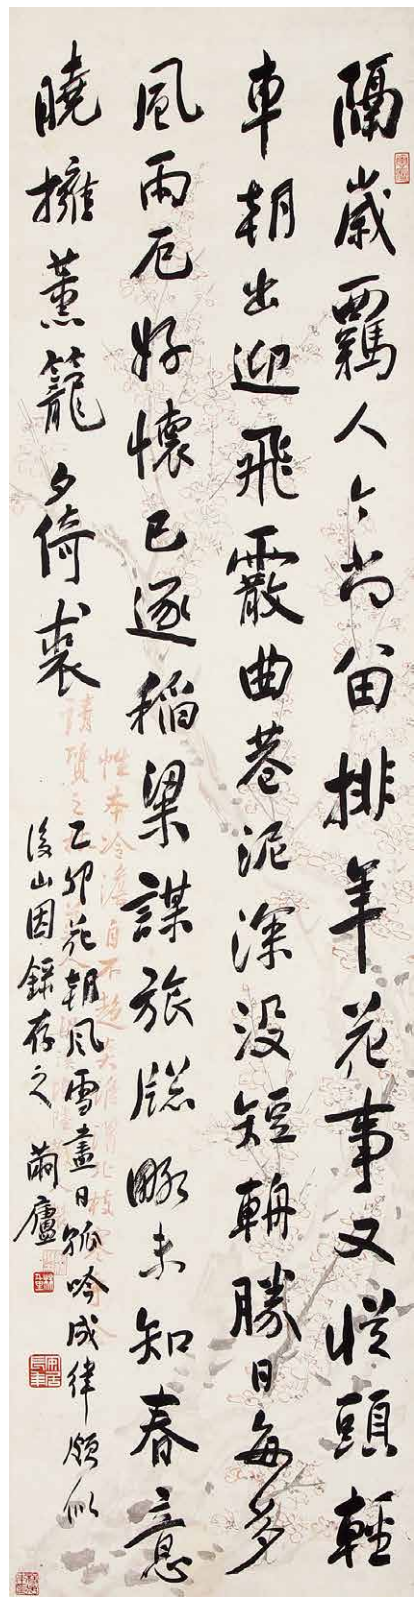 隔歲羈人今尚留排年花事又從頭輕
車朝出迎飛霰曲巷泥深沒短輈勝日每多
風雨厄好懷已逐稻梁謀旅牎未知春意
曉擁薰籠夕倚裘
乙卯花朝風雪盡日孤吟成律頗似
後山因錄存之 繭廬
性本冷澹自不趨炎
請質之